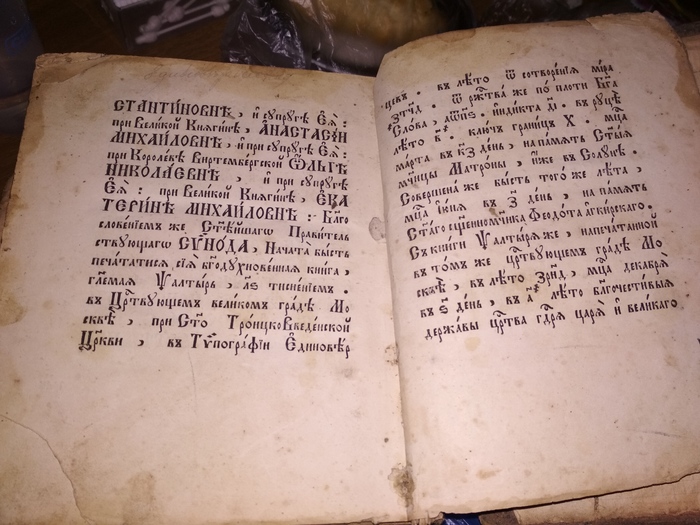 СТАНТИ́НОВНѢ, и҆ сꙋпрꙋгѣ Е҆ѧ̀:
при Вели́кой Кнѧги́нѣ, А҆НАСТАСІ́И
МИХА́ИЛОВНѢ, и҆ при сꙋпрꙋгѣ Е҆ѧ̀:
при Короле́вѣ Виртемберской Ѻ҆́ЛЬГѢ
НИКОЛА́ЕВНѢ, и҆ при сꙋпрꙋгѣ
Е҆ѧ̀: при Вели́кой Кнѧги́нѣ, Е҆КА
ТЕРИ́НѢ МИХА́ИЛОВНѢ: Бл҃го
слове́нїемъ же Ст҃ѣ́йшагѡ Прави́тель
ствꙋющагѡ СѴНО́ДА, Нача́та бы́сть
печа́татисѧ сїѧ̀ бг҃одꙋхнове́ннаѧ кни́га,
гл҃емаѧ Ѱалты́рь, тисне́нїемъ.
въ Ца́рствꙋющемъ вели́комъ гра́дѣ Мо
сквѣ̀, при Ст҃о Тро́ицко Введе́нской
Цр҃кви, въ Тѷпогра́фїи Е҆диновѣ́р
цевъ. въ лѣ́то ѿ сотворе́нїѧ мі́ра
ѿ ржⷭ҇тва́ же по пло́ти Бг҃а
Сло́ва, и҆ндикта въ рꙋцѣ̀
лѣ́то клю́чь грани́цъ Х. мцⷭ҇а
ма́рта въ к҃з де́нь, на па́мѧть Ст҃ы́ѧ
мч҃ницы Матро́ны, и҆́же въ Солꙋ́нѣ.
Соверше́на же бы́сть того́ же лѣ́та,
мцⷭ҇а і҆ю́нѧ въ з҃ де́нь, на па́мѧть
Ст҃а́го сщ҃енном҃ч́ника Ѳеодо́та а҆гки́рскаго.
Съ кни́ги Ѱалты́рѧ же, напеча́танной
въ то́мъ же цр҃твꙋющемъ гра́дѣ Мо
сквѣ̀, въ лѣ́то зр҃н҃д, мцⷭ҇а декабрѧ̀
въ ѕ҃ де́нь, въ а҃ лѣ́то бл҃гочести́выѧ
держа́вы цр҃тва гдⷭ҇рѧ царѧ̀ и҆ вели́каго